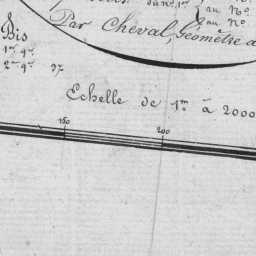 au No.
au No.
Par Cheval, Géomètre a
Bis
1re qé.
2me qé. 97
Echelle de 1m à 2000
150 200